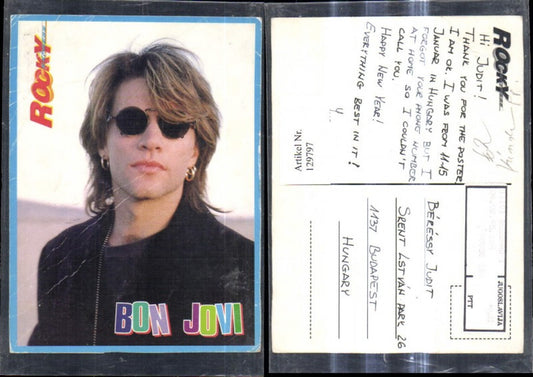 ROCKY
BON JOVI
ROCKY
Hi JUDIT!
THANK YOU FOR THE POSTER
I AM OK. I WAS FROM 11-15
JANUAR IN HUNGARY BUT I
FORGOT YOUR PHONE NUMBER
AT HOME SO I COULDN'T
CALL YOU.
HAPPY NEW YEAR!
EVERYTHING BEST IN IT!
Y...
Artikel Nr.
129797
BÉRESSY JUDIT
SRENT ISTVÁN PARK 26
1137 BUDAPEST
HUNGARY
JUGOSLAVIJA
PTT